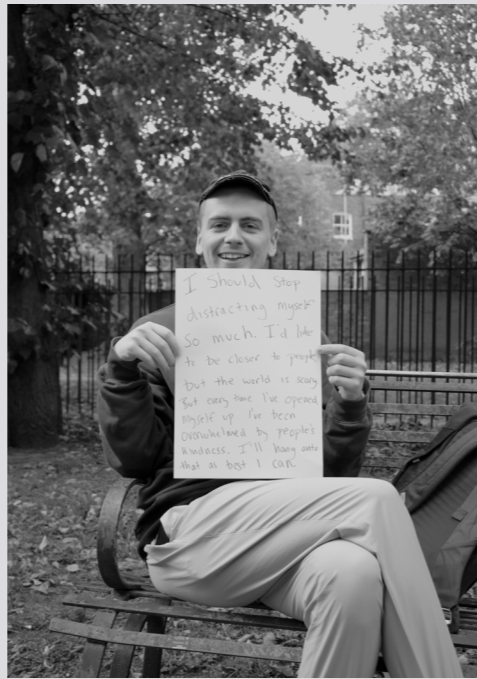 I Should Stop
distracting myself
So much. I'd like
to be closer to people
but the world is scary
But every time I've opened
myself up I've been
overwhelmed by people's
kindness. I'll hang onto
that as best I can.